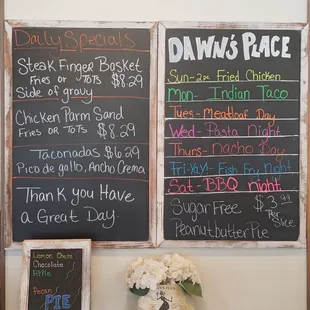 Daily Specials
Steak Finger Basket
Fries or Tots $8.29
Side of gravy
Chicken Parm Sand
Fries or Tots $8.29
Taconadas $6.29
Pico de gallo, Ancho Crema
Thank you Have
a Great Day
DAWN'S PLACE
Sun- Fried Chicken
Mon- Indian Taco
Tues- Meatloaf Day
Wed- Pasta Night
Thurs- Nacho Bay
Fri-Yay! Fish Fry Night
Sat- BBQ night
Sugar Free $3.99
Per
Slice
Peanutbutter Pie
Lemon Chess
Chocolate
Apple
Pecan
PIE